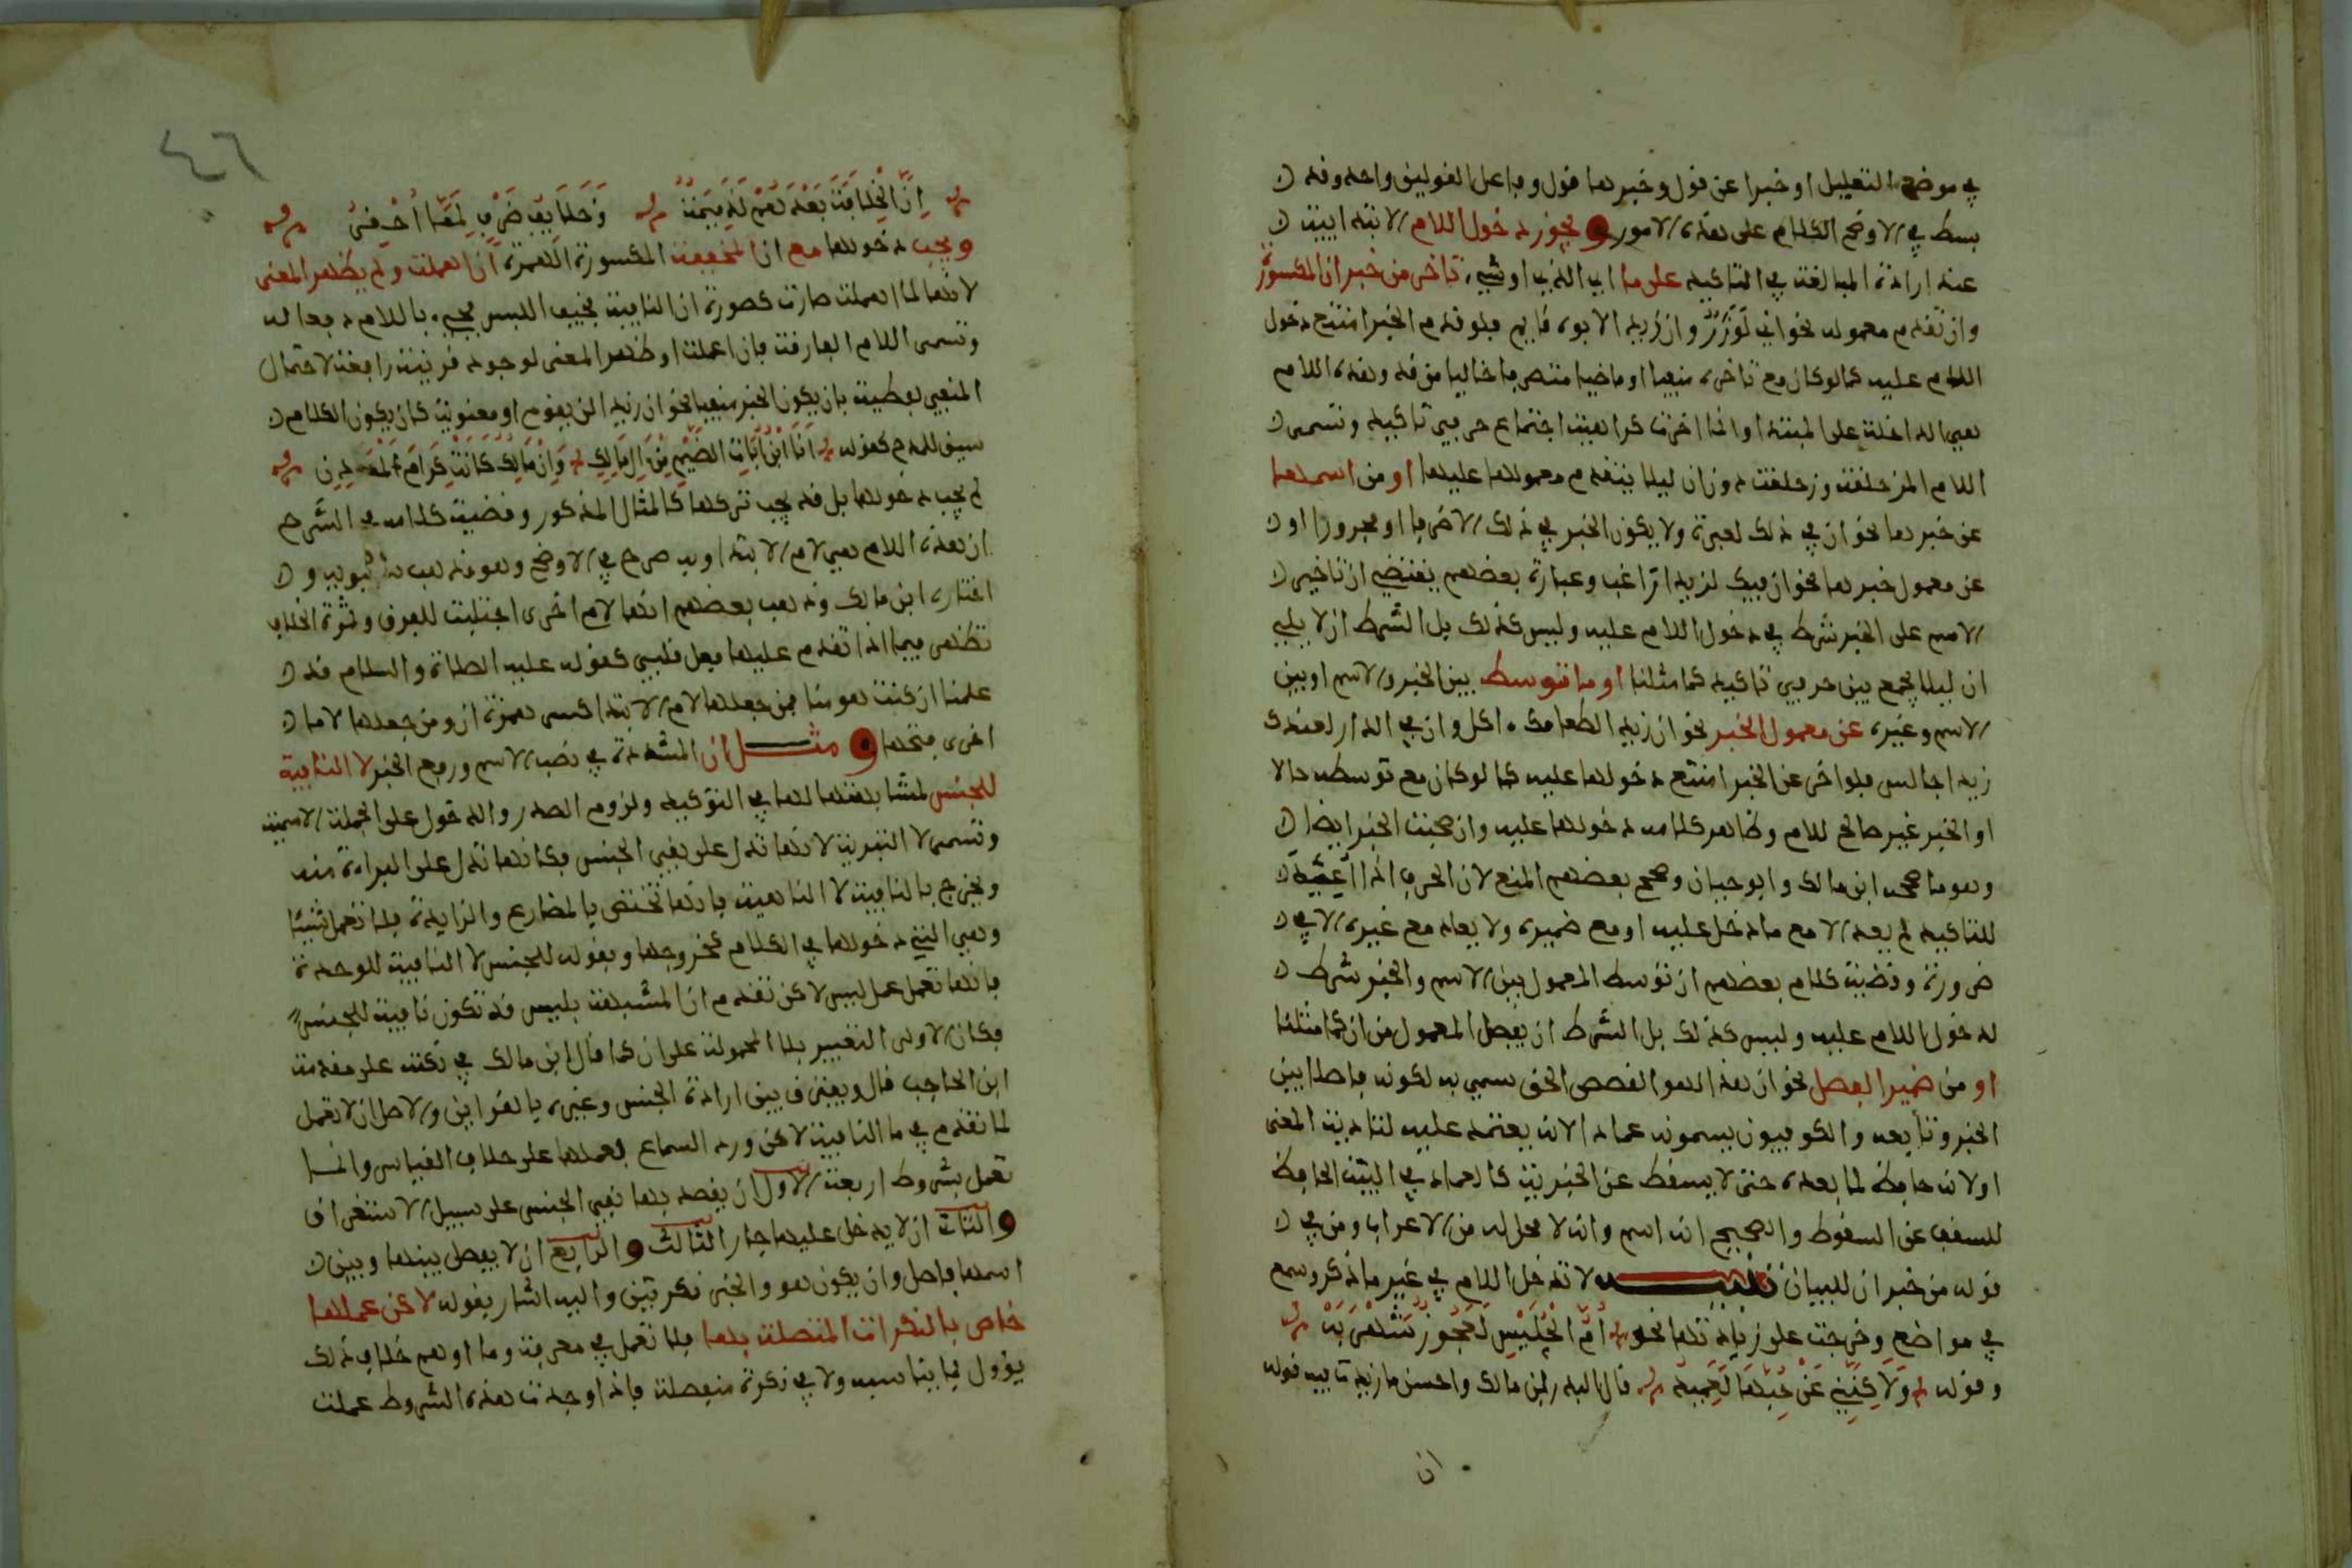 في موضع التعليل او خبرا عن قول وخبرها قول وفاعل القولين واحد وقد
بسط في الاوضح الكلام على هذه الامور ويجوز دخول اللام الابتدايية
عند ارادة المبالغة في التاكيد على ما اي الذي او شيء تاخر من خبر ان المكسورة
وان تقدم معموله نحو اني لوزر وان زيدا لابوه قايم فلو قدم الخبر امتنع دخول
اللام عليه كما لو كان مع تاخره منفيا او ماضيا متصرفا خاليا من قد وهذه اللام
هي الداخلة على المبتدا وانما اخرت كراهية اجتماع حرفي تاكيد وتسمى
اللام المزحلقة وزحلقت دون ان ليلا يتقدم معمولها عليها او من اسمها
عن خبرها نحو ان في ذلك لعبرة ولا يكون الخبر في ذلك الا ظرفا او مجرورا او
عن معمول خبرها نحو ان فيك لزيدا راغب وعبارة بعضهم يقتضي ان تاخير
الاسم على الخبر شرط في دخول اللام عليه وليس كذلك بل الشرط ان لا يلي
ان ليلا يجمع بين حرفي تاكيد كما مثلنا او ما توسط بين الخبر والاسم او بين
الاسم وغيره عن معمول الخبر نحو ان زيدا لطعامك اكل وان في الدار لعندك
زيدا جالس فلو اخر عن الخبر امتنع دخولها عليه كما لو كان مع توسطه حالا
او الخبر غير صالح للام وظاهر كلامه دخولها عليه وان صحبت الخبر ايضا
وهو ما صححه ابن مالك وابو حيان وصحح بعضهم المنع لان الحرف اذا اعيد
للتاكيد لم يعد الا مع ما دخل عليه او مع ضميره ولا يعاد مع غيره الا في
ضرورة وقضية كلام بعضهم ان توسط المعمول بين الاسم والخبر شرط
لدخول اللام عليه وليس كذلك بل الشرط ان يفصل المعمول من ان كما مثلنا
او من ضمير الفصل نحو ان هذا لهو القصص الحق سمي به لكونه فاصلا بين
الخبر وتابعه والكوفيون يسمونه عمادا لانه يعتمد عليه لتادية المعنى
او لانه حافظ لما بعده حتى لا يسقط عن الخبرية كالعماد في البيت الحافظ
للسقف عن السقوط والصحيح انه اسم وانه لا محل له من الاعراب ومن في
قوله من خبر ان للبيان تنبيه لا تدخل اللام في غير ما ذكر وسمع
في مواضع وخرجت على زيادتها نحو ام الحليس لعجوز شهربه
وقوله ولاكنني عن حبها لعميد قال البدر ابن مالك واحسن ما زيدت فيه قوله
ان
٤٦
ان الخلافة بعدهم لذميمة وخلايف ظرف لمما احقر
ويجب دخولها مع ان المخففة المكسورة الهمزة ان اهملت ولم يظهر المعنى
لانها لما اهملت صارت كصورة ان النافية فخيف اللبس فجيء باللام دفعا له
وتسمى اللام الفارقة فان اعملت او ظهر المعنى لوجود قرينة رافعة لاحتمال
النفي لفظية بان يكون الخبر منفيا نحو ان زيد لن يقوم او معنوية كان يكون الكلام
سيق للمدح كقوله انا ابن اباة الضيم من ال مالك وان مالك كانت كرام المعادن
لم يجب دخولها بل قد يجب تركها كالمثال المذكور وقضية كلامه في الشرح
ان هذه اللام هي لام الابتدا وبه صرح في الاوضح وهو مذهب سيبويه و
اختاره ابن مالك وذهب بعضهم انها لام اخرى اجتلبت للفرق وثمرة الخلاف
تظهر فيما اذا تقدم عليها فعل قلبي كقوله عليه الصلاة والسلام قد
علمنا ان كنت لمومنا فمن جعلها لام الابتدا كسر همزة ان ومن جعلها لاما
اخرى فتحها ومثل ان المشددة في نصب الاسم ورفع الخبر لا النافية
للجنس لمشابهتها لها في التوكيد ولزوم الصدر والدخول على الجملة الاسمية
وتسمى لا التبرية لانها تدل على نفي الجنس فكانها تدل على البراءة منه
ويخرج بالنافية لا الناهية فانها تختص بالمضارع والزايدة فلا تعمل شيئا
وهي التي دخولها في الكلام كخروجها وبقوله للجنس لا النافية للوحدة
فانها تعمل عمل ليس لاكن تقدم ان المشبهة بليس قد تكون نافية للجنس
فكان الاولى التعبير بلا المحمولة على ان كما قال ابن مالك في نكته على مقدمة
ابن الحاجب قال ويفترق بين ارادة الجنس وغيره بالقراين والاصل ان لا تعمل
لما تقدم في ما النافية لاكن ورد السماع بعملها على خلاف القياس وانما
تعمل بشروط اربعة الاول ان يقصد بها نفي الجنس على سبيل الاستغراق
والثاني ان لا يدخل عليها جار الثالث والرابع ان لا يفصل بينها وبين
اسمها فاصل وان يكون هو والخبر نكرتين واليه اشار بقوله لاكن عملها
خاص بالنكرات المتصلة بها فلا تعمل في معرفة وما اوهم خلاف ذلك
يؤول بما يناسبه ولا في نكرة منفصلة فاذا وجدت هذه الشروط عملت